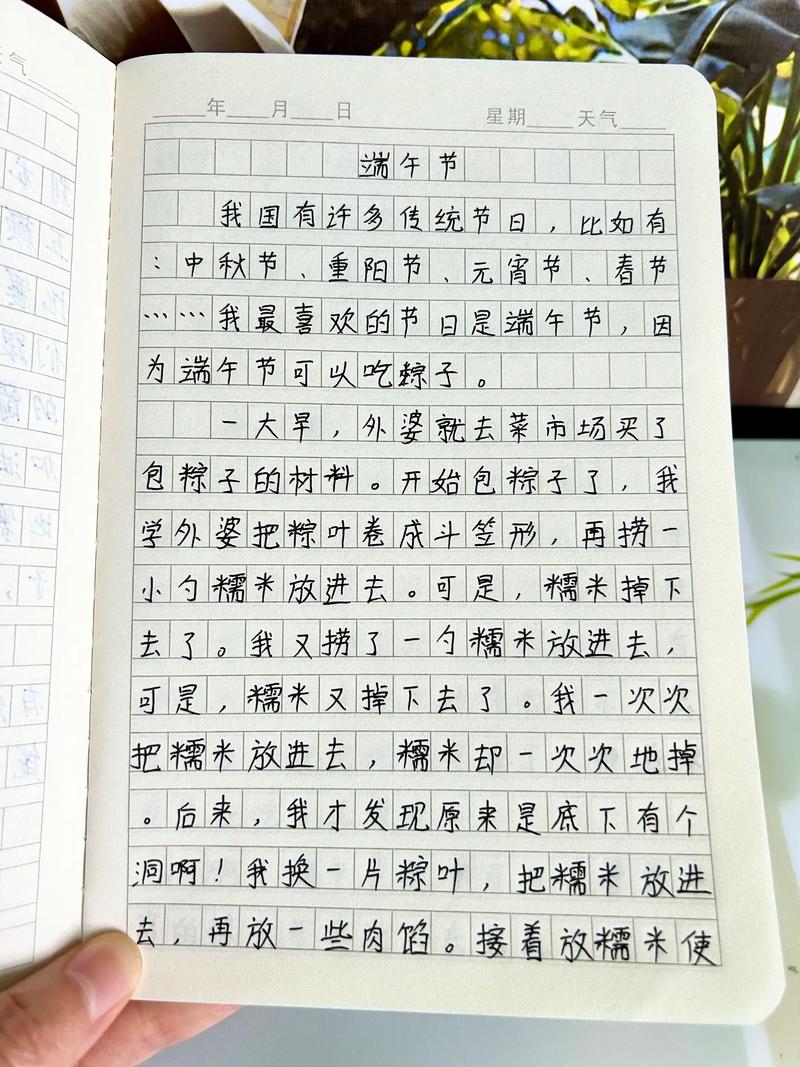 天气
____年____月____日 星期____天气____
端午节
我国有许多传统节日，比如有
：中秋节、重阳节、元宵节、春节
……我最喜欢的节日是端午节，因
为端午节可以吃粽子。
一大早，外婆就去菜市场买了
包粽子的材料。开始包粽子了，我
学外婆把粽叶卷成斗笠形，再捞一
小勺糯米放进去。可是，糯米掉下
去了。我又捞了一勺糯米放进去，
可是，糯米又掉下去了。我一次次
把糯米放进去，糯米却一次次地掉
。后来，我才发现原来是底下有个
洞啊！我换一片粽叶，把糯米放进
去，再放一些肉馅。接着放糯米使